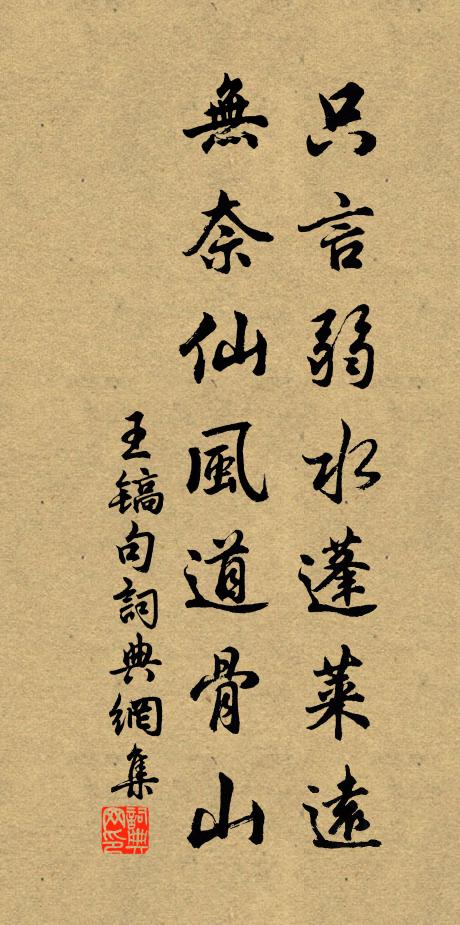 只言弱水蓬萊遠
無奈仙風道骨山
王镐句詞典網集
詞典
网印